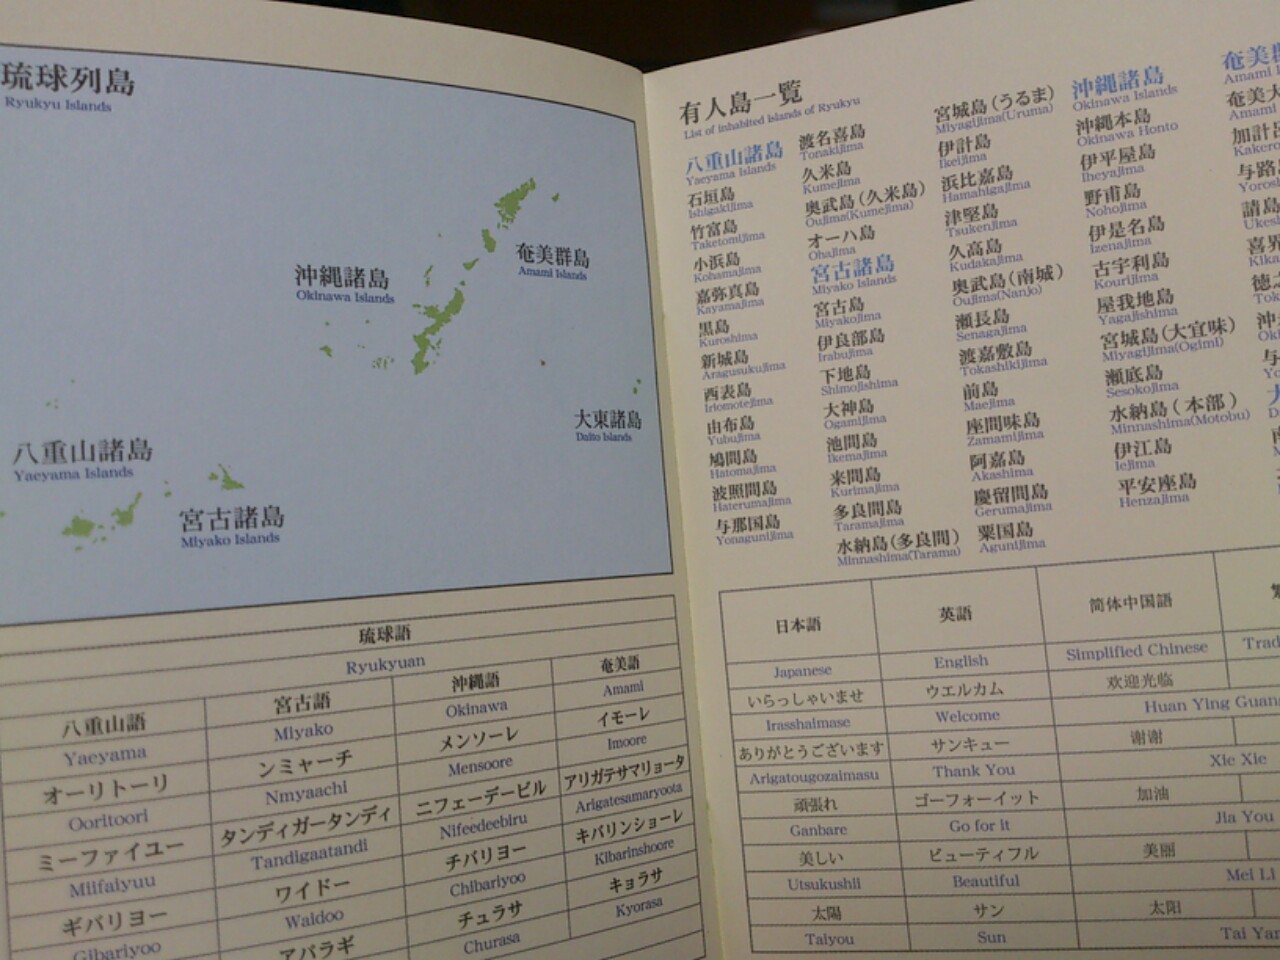 琉球列島
Ryukyu Islands
奄美群島
Amami Islands
沖縄諸島
Okinawa Islands
大東諸島
Daito Islands
八重山諸島
Yaeyama Islands
宮古諸島
Miyako Islands
琉球語
Ryukyuan
八重山語
宮古語
沖縄語
奄美語
Yaeyama
Miyako
Okinawa
Amami
オーリトーリ
ンミャーチ
メンソーレ
イモーレ
Ooritoori
Nmyaachi
Mensoore
Imoore
ミーファイユー
タンディガータンディ
ニフェーデービル
アリガテサマリョータ
Miifaiyuu
Tandigaatandi
Nifeedeebiru
Arigatesamaryoota
ギバリヨー
ワイドー
チバリヨー
キバリンショーレ
Gibariyoo
Waidoo
Chibariyoo
Kibarinshoore
アパラギ
チュラサ
キョラサ
Churasa
Kyorasa
有人島一覧
List of inhabited islands of Ryukyu
八重山諸島
Yaeyama Islands
石垣島
Ishigakijima
竹富島
Taketomijima
小浜島
Kohamajima
嘉弥真島
Kayamajima
黒島
Kuroshima
新城島
Aragusukujima
西表島
Iriomotejima
由布島
Yubujima
鳩間島
Hatomajima
波照間島
Haterumajima
与那国島
Yonagunijima
渡名喜島
Tonakijima
久米島
Kumejima
奥武島(久米島)
Oujima(Kumejima)
オーハ島
Ohajima
宮古諸島
Miyako Islands
宮古島
Miyakojima
伊良部島
Irabujima
下地島
Shimojishima
大神島
Ogamijima
池間島
Ikemajima
来間島
Kurimajima
多良間島
Taramajima
水納島(多良間)
Minnashima(Tarama)
宮城島(うるま)
Miyagijima(Uruma)
伊計島
Ikeijima
浜比嘉島
Hamahigajima
津堅島
Tsukenjima
久高島
Kudakajima
奥武島(南城)
Oujima(Nanjo)
瀬長島
Senagajima
渡嘉敷島
Tokashikijima
前島
Maejima
座間味島
Zamamijima
阿嘉島
Akashima
慶留間島
Gerumajima
粟国島
Agunijima
沖縄諸島
Okinawa Islands
沖縄本島
Okinawa Honto
伊平屋島
Iheyajima
野甫島
Nohojima
伊是名島
Izenajima
古宇利島
Kourijima
屋我地島
Yagajishima
宮城島(大宜味)
Miyagijima(Ogimi)
瀬底島
Sesokojima
水納島(本部)
Minnashima(Motobu)
伊江島
Iejima
平安座島
Henzajima
奄美群
Amami I
奄美大
Amami
加計呂
Kakero
与路島
Yoros
請島
Ukes
喜界
Kika
徳之
Tok
沖
日本語
英語
简体中国語
Japanese
English
Simplified Chinese
Trad
いらっしゃいませ
ウエルカム
欢迎光临
Irasshaimase
Welcome
Huan Ying Guan
ありがとうございます
サンキュー
谢谢
Arigatougozaimasu
Thank You
Xie Xie
頑張れ
ゴーフォーイット
加油
Ganbare
Go for it
Jia You
美しい
ビューティフル
美丽
Utsukushii
Beautiful
Mei Li
太陽
サン
太阳
Taiyou
Sun
Tai Yan